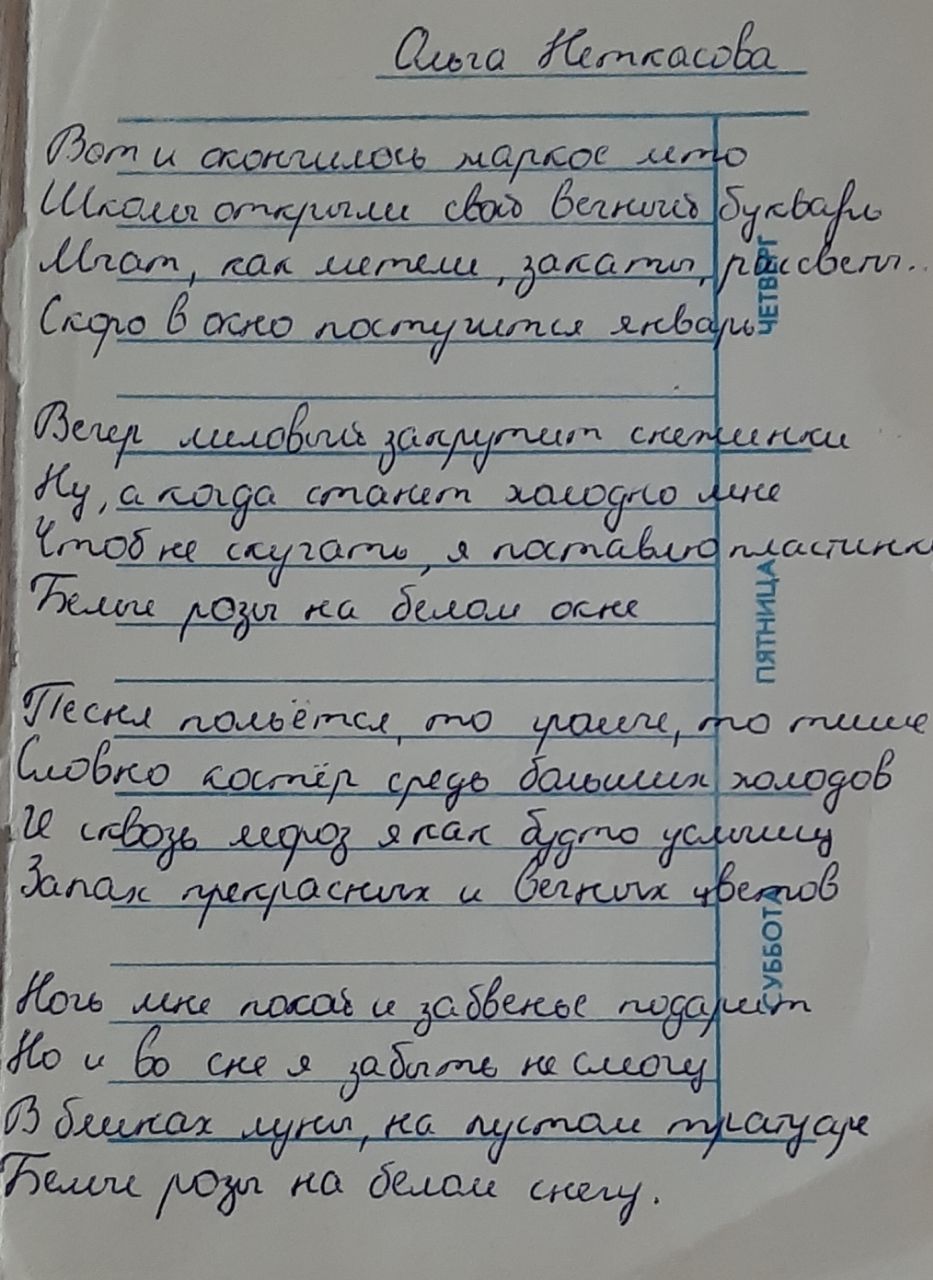 Ольга Неткасова
Вот и окончилось жаркое лето
Школы открыли свой вечный букварь
Мчат, как метели, закаты, рассветы..
Скоро в окно постучится январь
ЧЕТВЕРГ
Вечер лиловый закрутит снежинки
Ну, а когда станет холодно мне
Чтоб не скучать, я поставлю пластинк
Белые розы на белом окне
ПЯТНИЦА
Песня польётся, то громче, то тише
Словно костёр средь больших холодов
И сквозь мороз я как будто услышу
Запах прекрасных и вечных цветов
СУББОТА
Ночь мне покой и забвенье подарит
Но и во сне я забыть не смогу
В бликах луны, на пустом тратуаре
Белые розы на белом снегу.